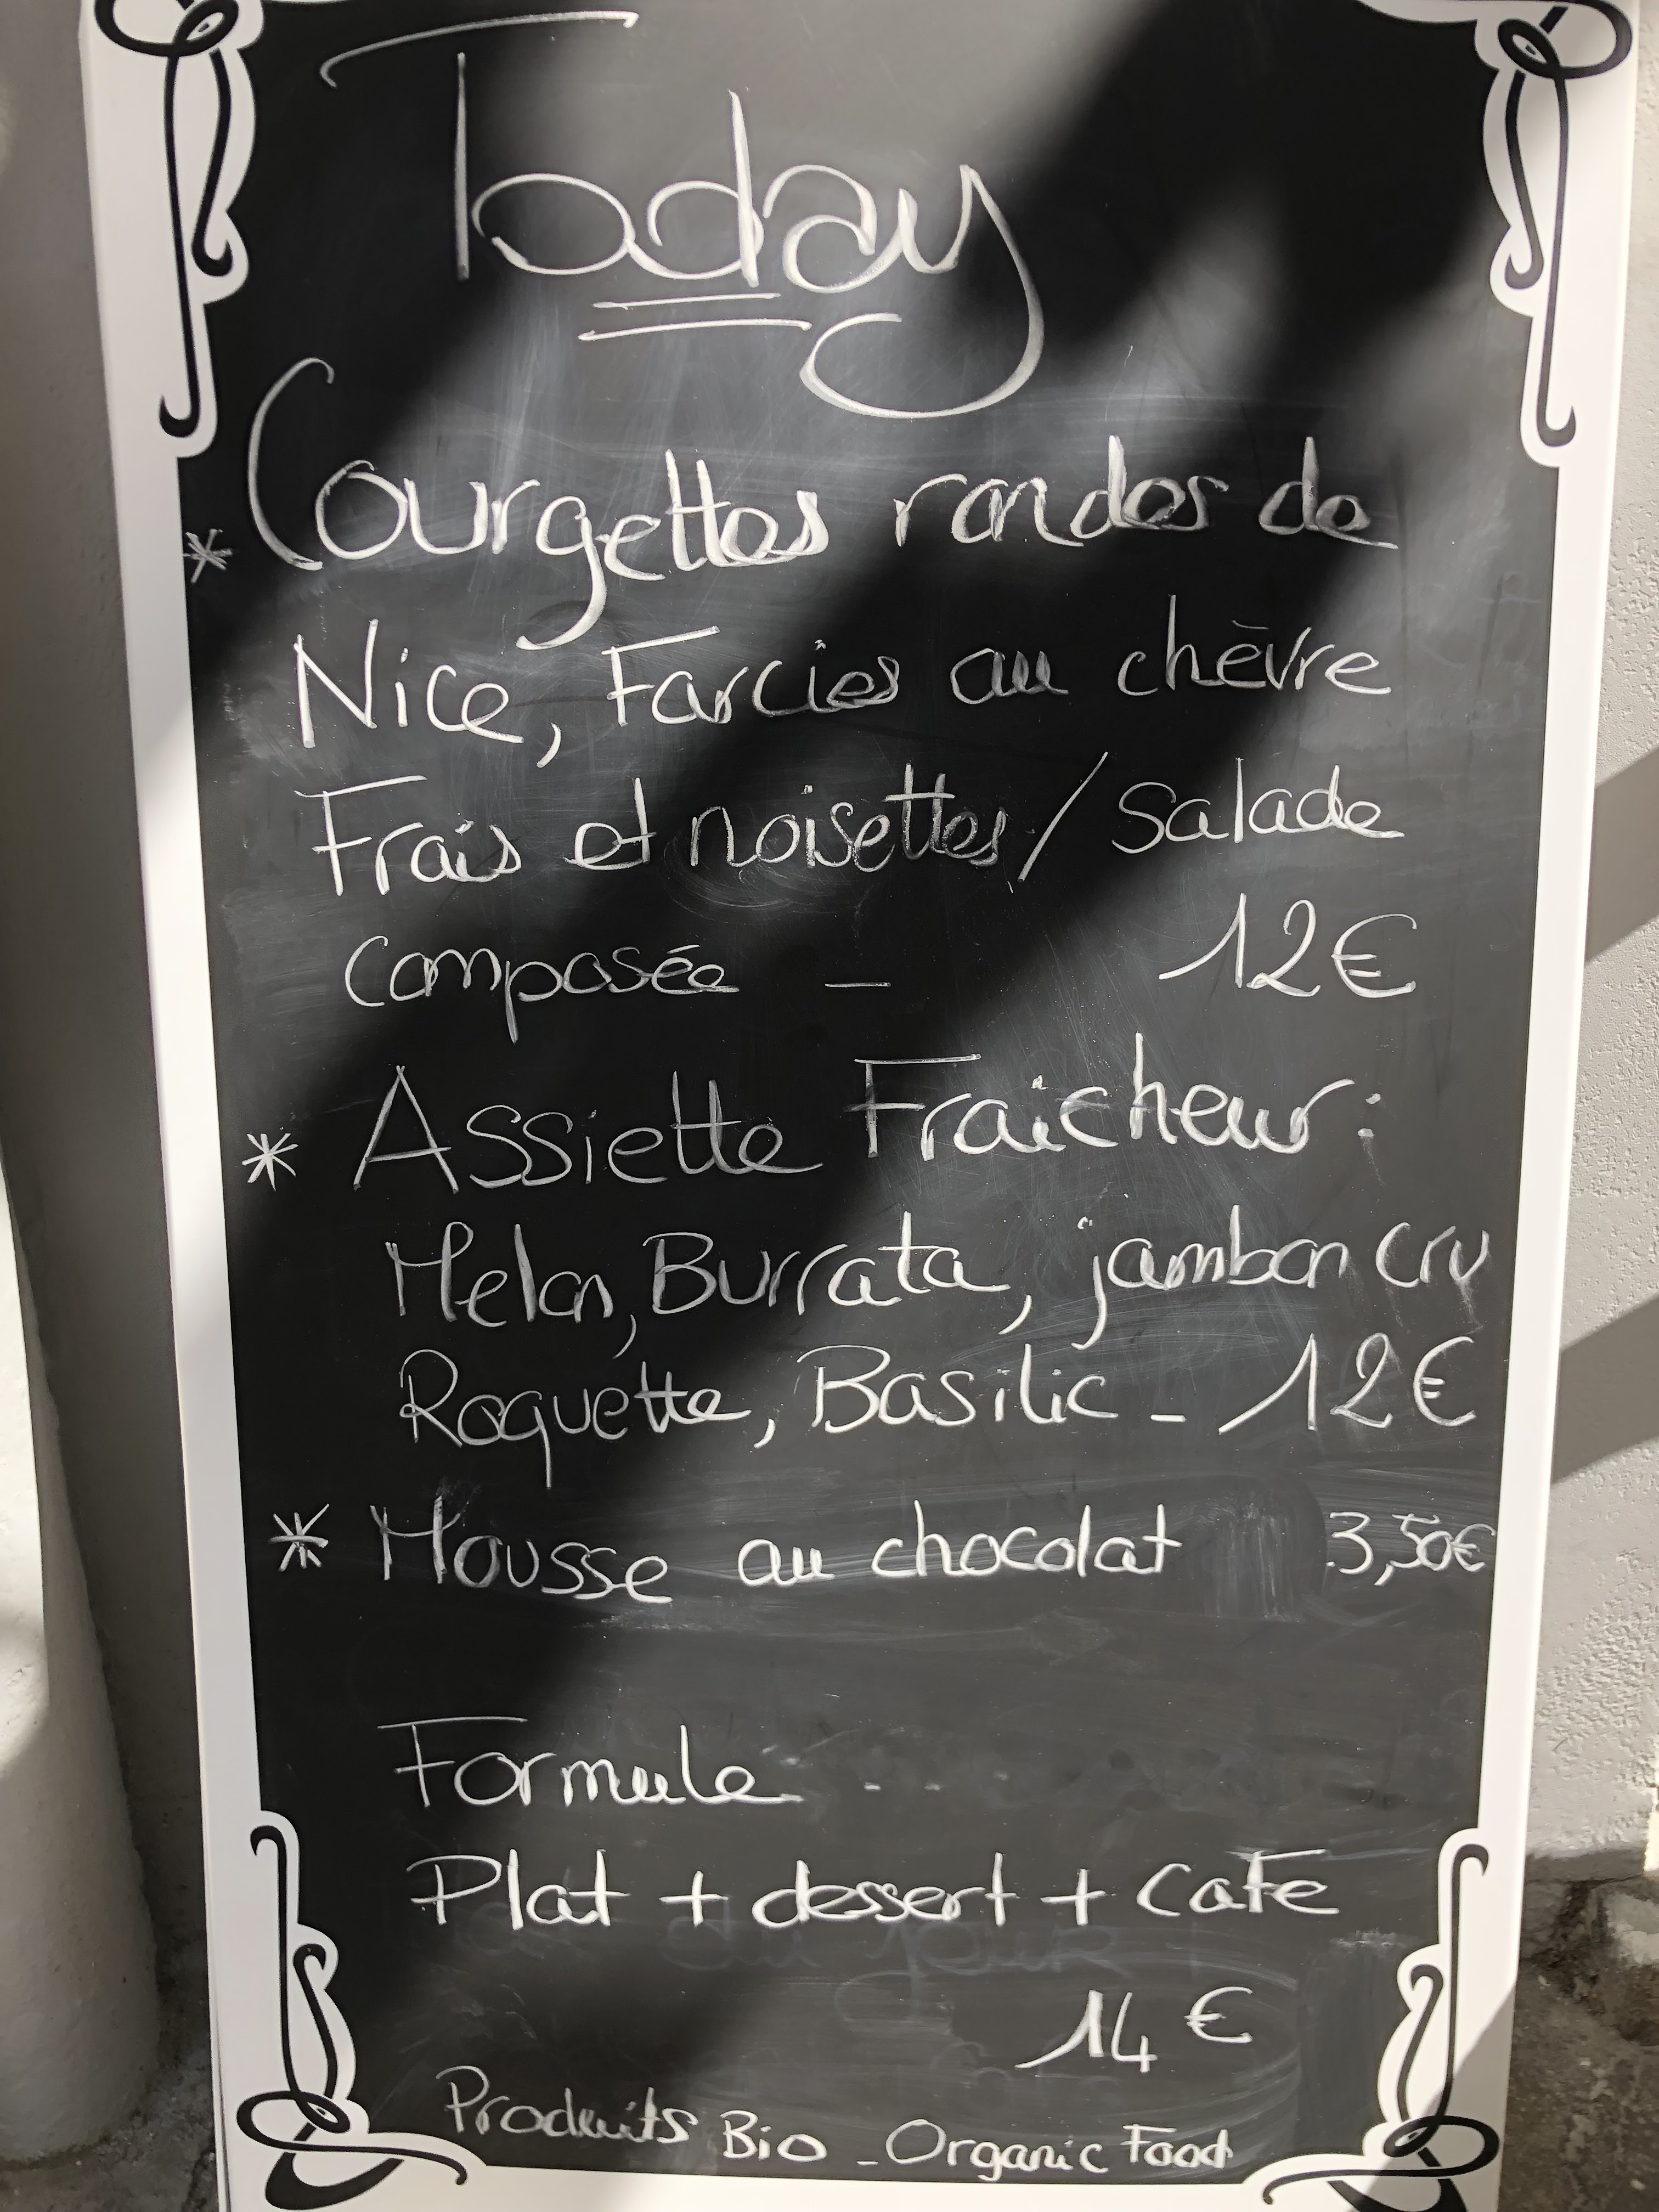 Today
* Courgettes rondes de
Nice, Farcies au chèvre
Frais et noisettes / Salade
composée - 12€
* Assiette Fraicheur :
Melon, Burrata, jambon cru
Roquette, Basilic - 12€
* Mousse au chocolat 3,50€
Formule
Plat + dessert + café
14 €
Produits Bio - Organic Food